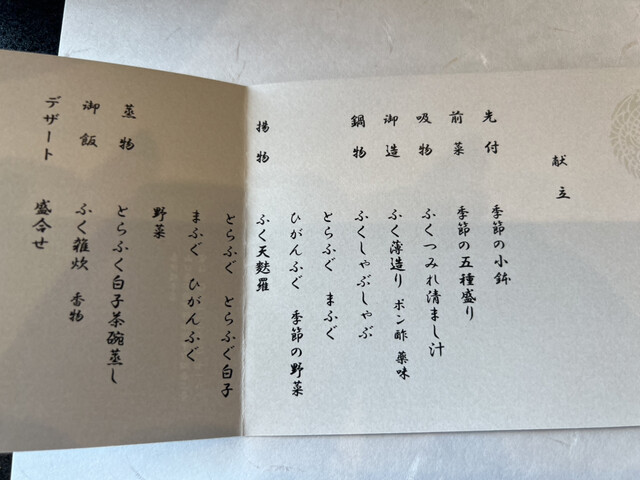 献立
先付 季節の小鉢
前菜 季節の五種盛り
吸物 ふくつみれ清まし汁
御造 ふく薄造り ポン酢 薬味
鍋物 ふくしゃぶしゃぶ
とらふぐ まふぐ
ひがんふぐ 季節の野菜
揚物 ふく天麩羅
とらふぐ とらふぐ白子
まふぐ ひがんふぐ
野菜
蒸物 とらふく白子茶碗蒸し
御飯 ふく雑炊 香物
デザート 盛合せ